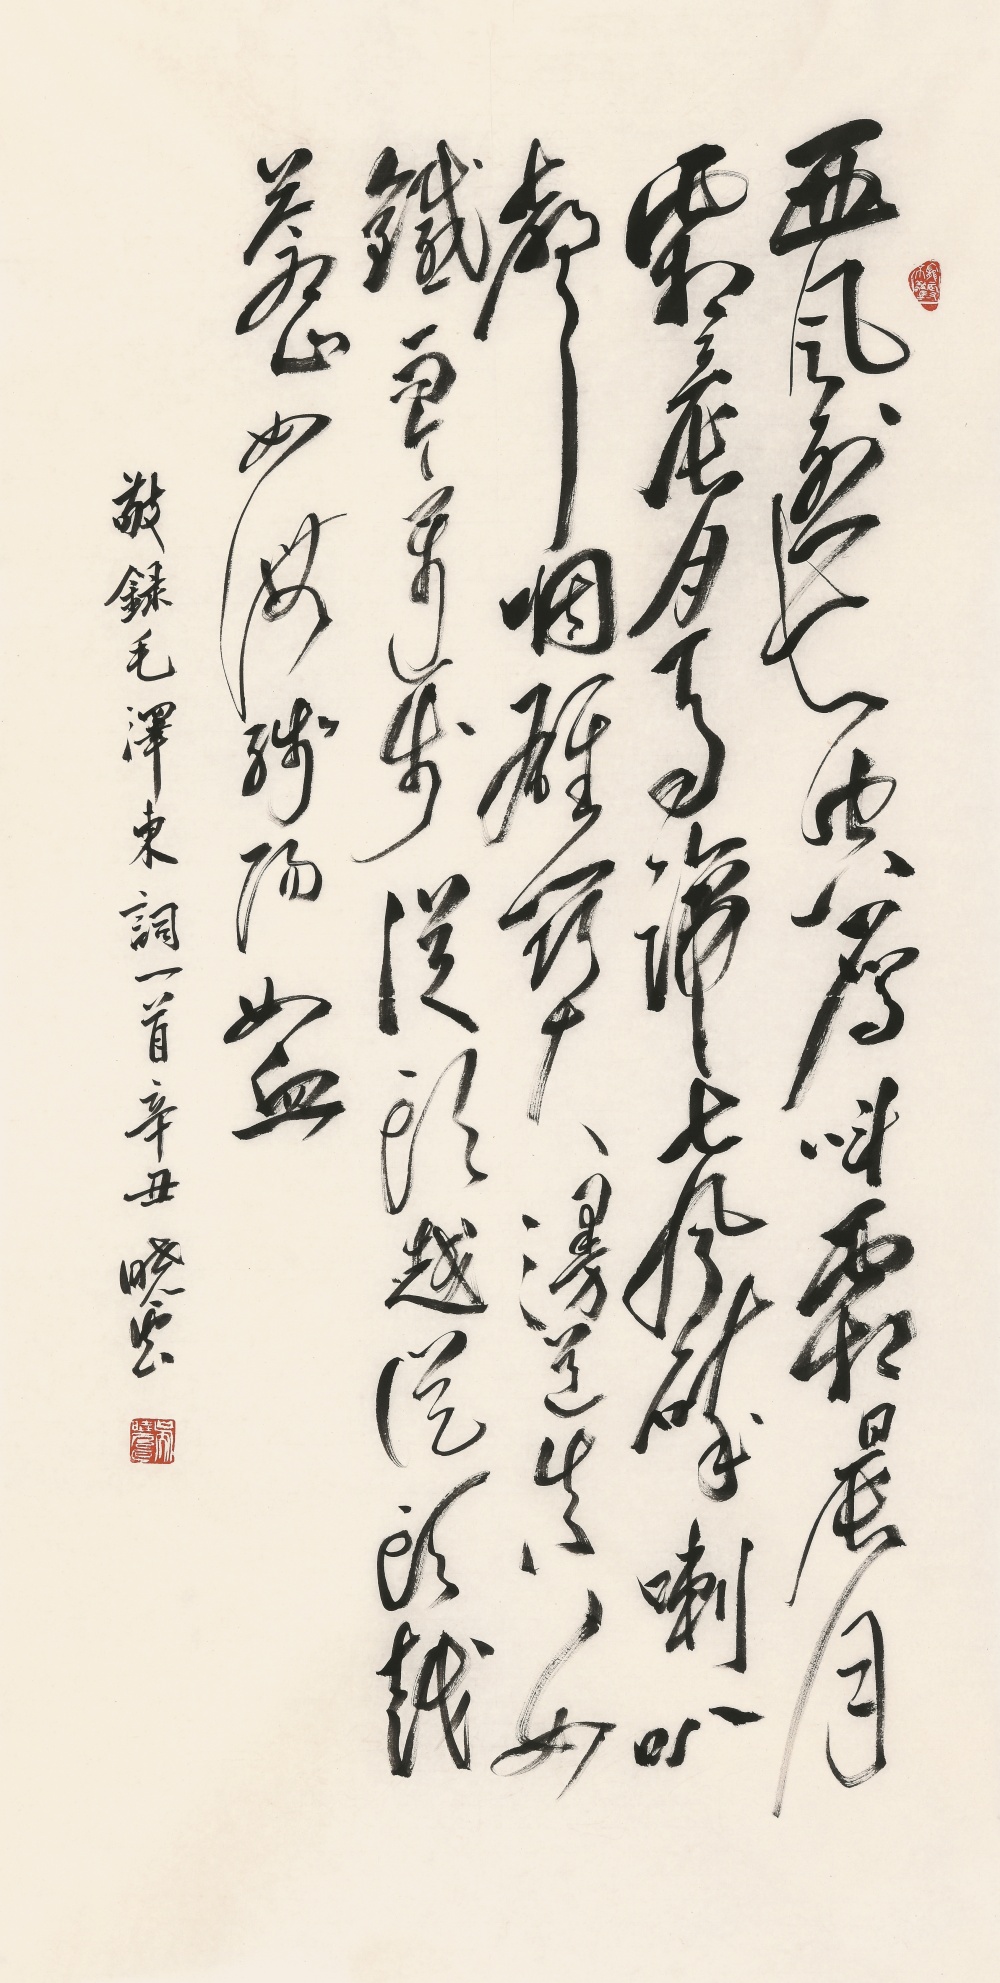 西風烈長空雁叫霜晨月
霜晨月馬蹄聲碎喇叭
聲咽雄關漫道真如
鐵而今邁步從頭越從頭越
蒼山如海殘陽如血
敬録毛澤東詞一首辛丑曉雲